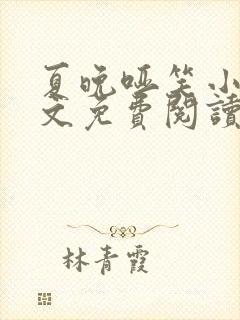 夏晚哑笑小
文免費閱讀
林青霞